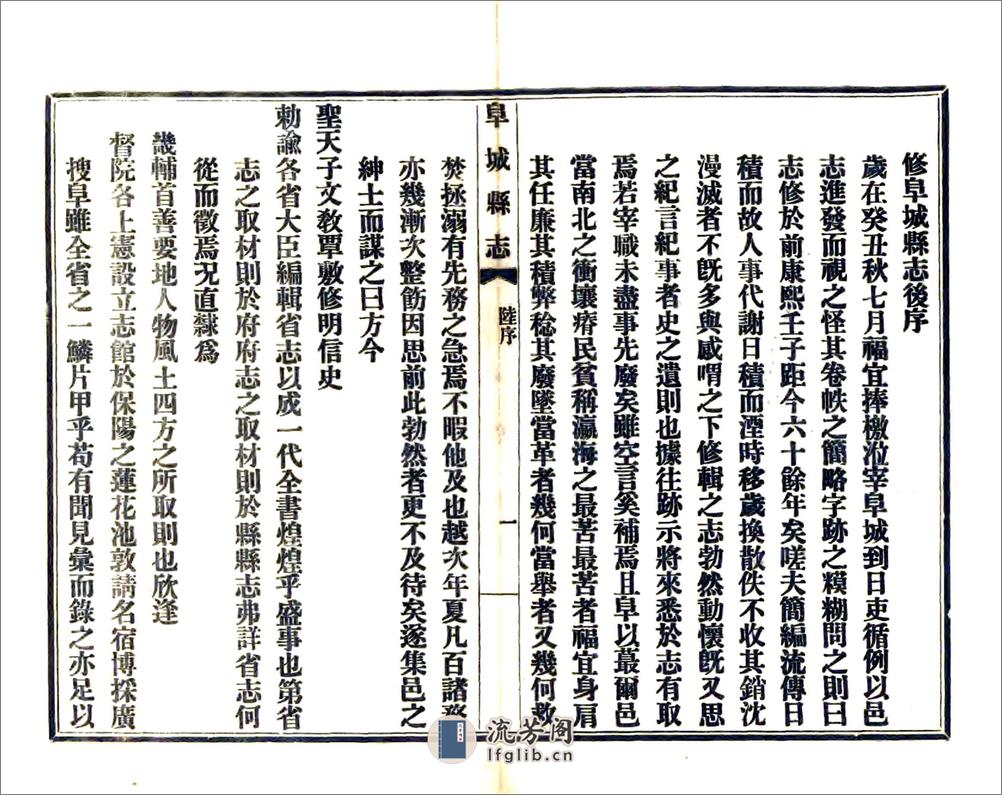 修阜城縣志後序
歲在癸丑秋七月福宜捧檄涖宰阜城到日吏循例以邑
志進發而視之怪其卷帙之簡略字跡之糢糊問之則曰
志修於前康熙壬子距今六十餘年矣嗟夫簡編流傳日
積而故人事代謝日積而湮時移歲換散佚不收其銷沈
漫滅者不既多與感喟之下修輯之志勃然動懷既又思
之紀言紀事者史之遺則也據往跡示將來悉於志有取
焉若宰職未盡事先廢矣雖空言奚補焉且阜以蕞爾邑
當南北之衝壤瘠民貧稱瀛海之最苦最苦者福宜身肩
其任廉其積弊稔其廢墜當革者幾何當舉者又幾何救
阜城縣志
陸序
一
焚拯溺有先務之急焉不暇他及也越次年夏凡百諸務
亦幾漸次整筋因思前此勃然者更不及待矣遂集邑之
紳士而謀之曰方今
聖天子文敎覃敷修明信史
勅諭各省大臣編輯省志以成一代全書煌煌乎盛事也第省
志之取材則於府府志之取材則於縣縣志弗詳省志何
從而徵焉况直隸爲
畿輔首善要地人物風土四方之所取則也欣逢
督院各上憲設立志館於保陽之蓮花池敦請名宿博採廣
搜阜雖全省之一鱗片甲乎苟有聞見彙而錄之亦足以
流芳阁
lfglib.cn